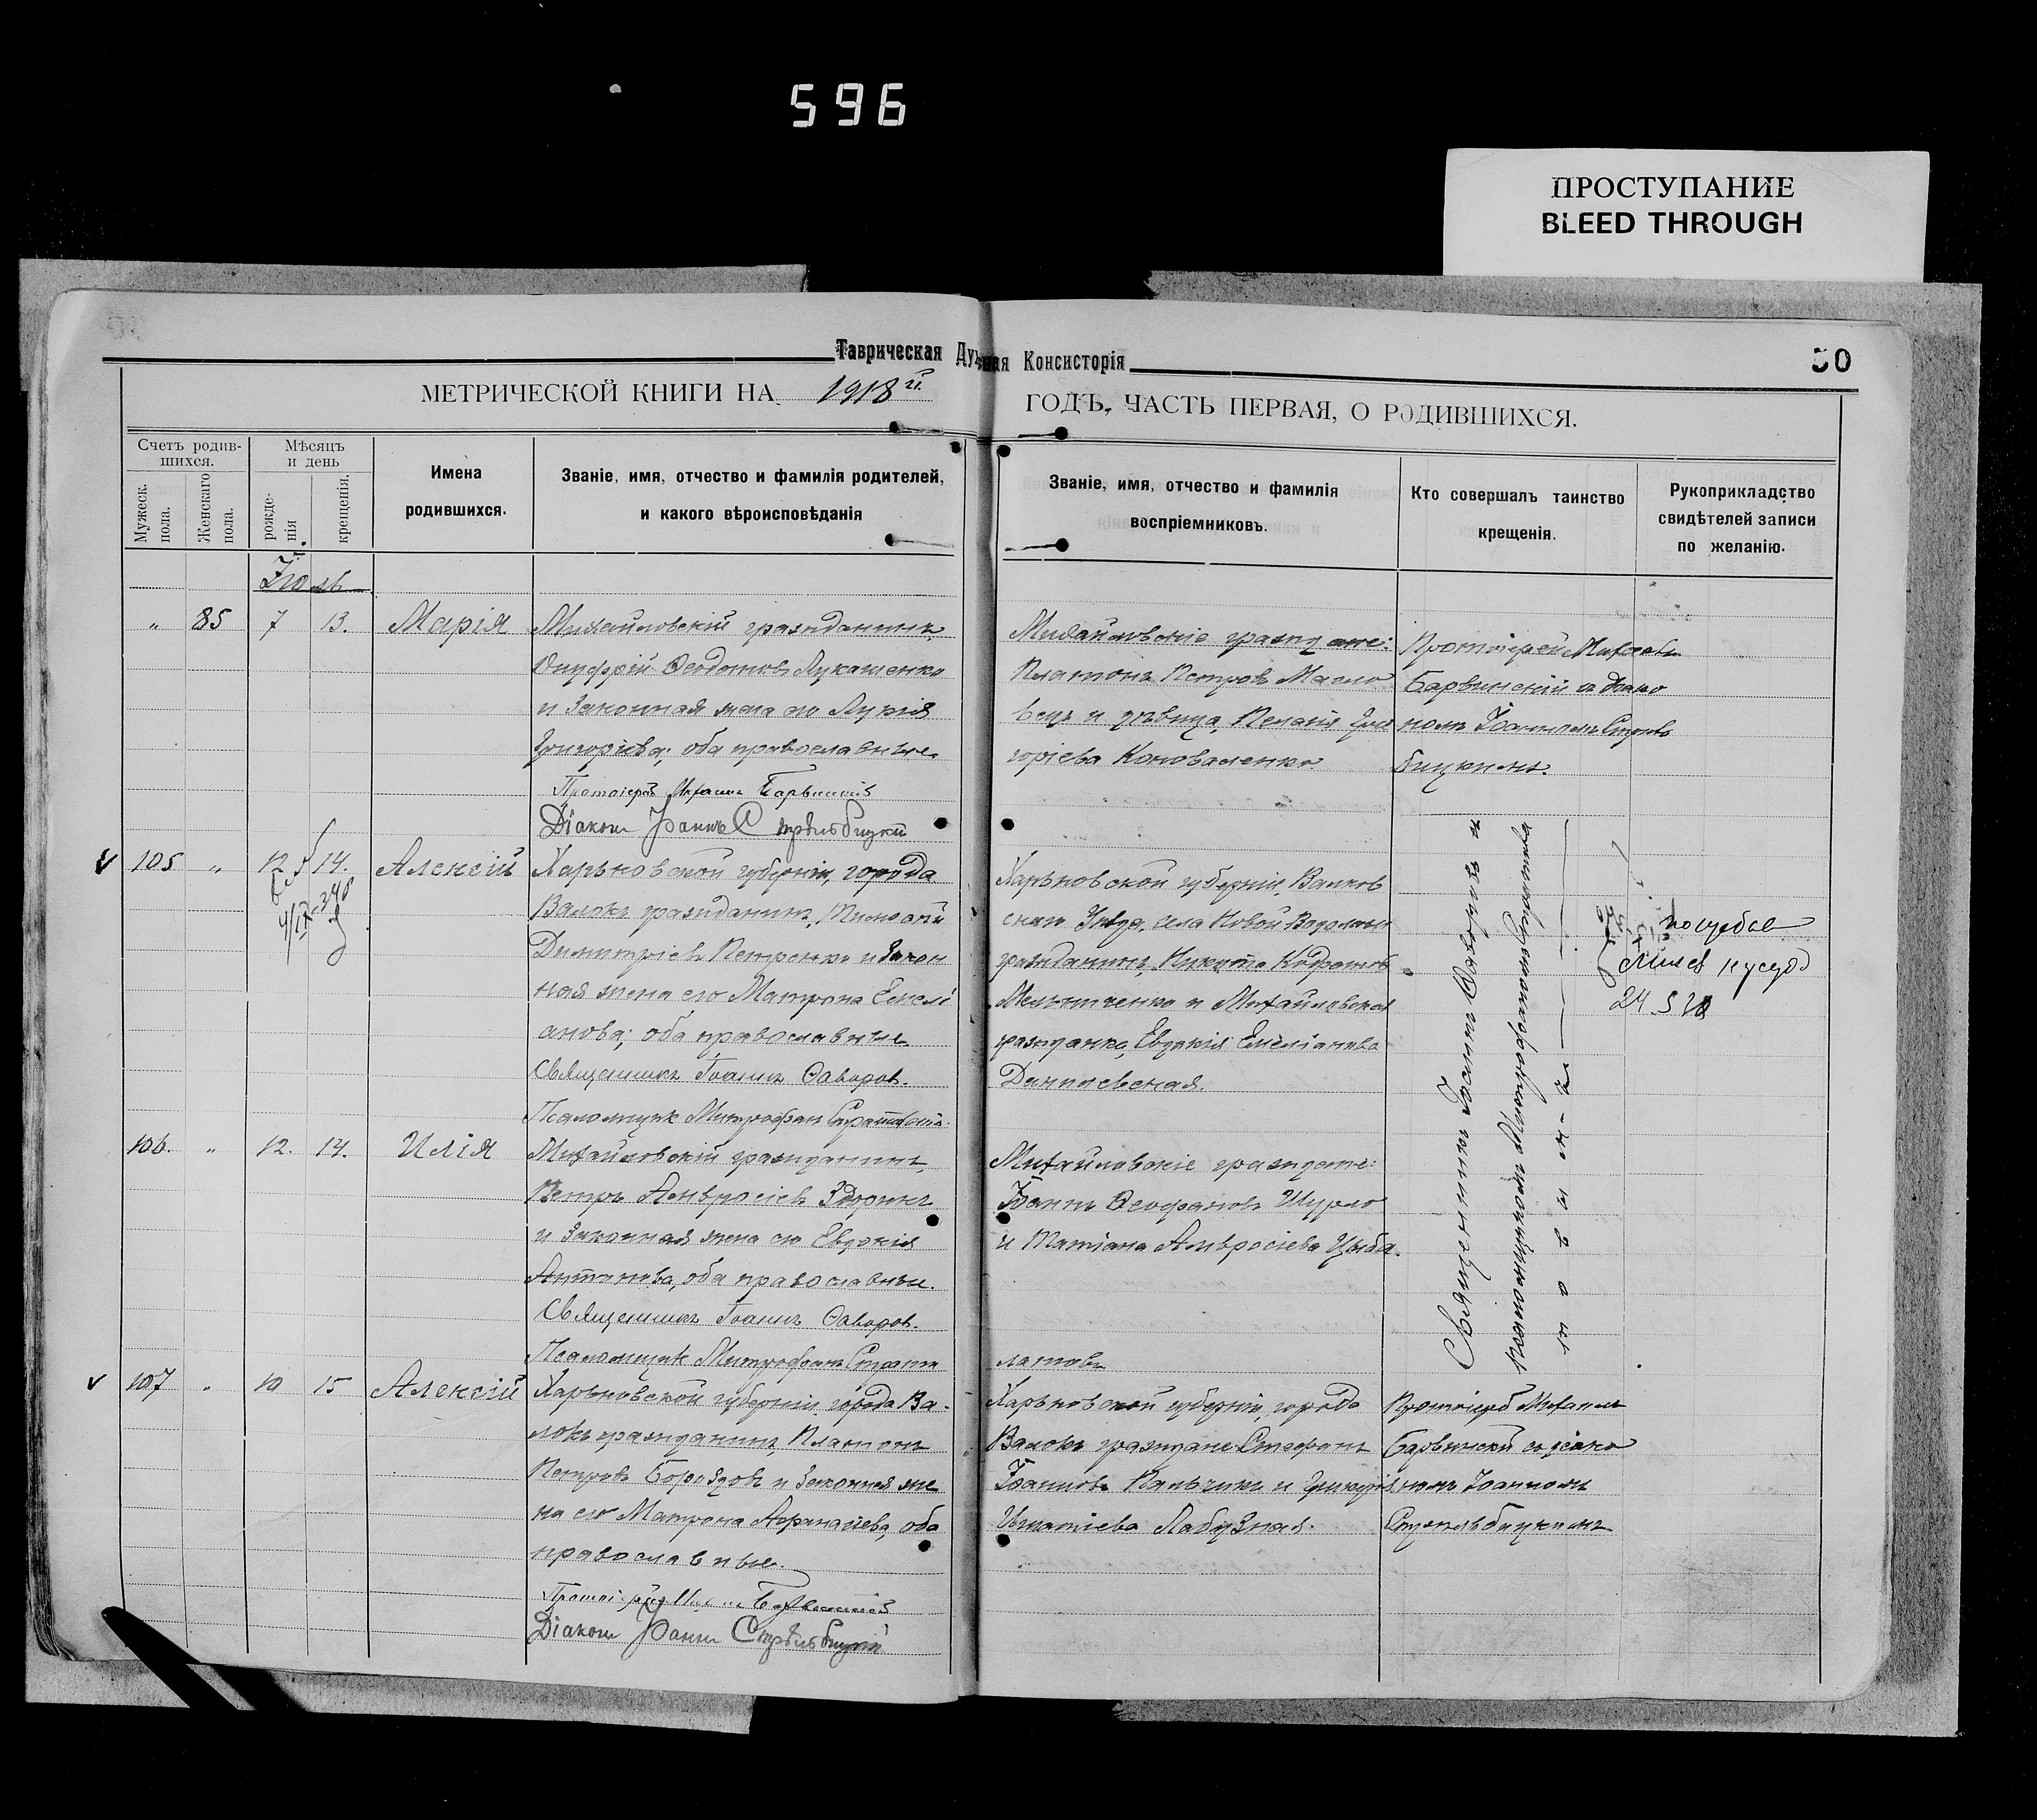 596
ПРОСТУПАНИЕ
BLEED THROUGH
Таврическая Духовная Консисторія
50
МЕТРИЧЕСКОЙ КНИГИ НА 1918й
ГОДЪ, ЧАСТЬ ПЕРВАЯ, О РОДИВШИХСЯ.
Счетъ родив-
шихся.
Мужеск.
пола.
Женскаго
пола.
Мѣсяцъ
и день
рожде-
нія
крещенія.
Имена
родившихся.
Званіе, имя, отчество и фамилія родителей,
и какого вѣроисповѣданія
Званіе, имя, отчество и фамилія
воспріемниковъ.
Кто совершалъ таинство
крещенія.
Рукоприкладство
свидѣтелей записи
по желанію.
Іюль
„ 85 7 13. Марія
Михайловскій гражданинъ
Онуфрій Ѳеодотовъ Лукашенко
и законная жена его Лукія
Григоріева; оба православные.
Протоіерей Михаилъ Барвинскій
Діаконъ Іоаннъ Стрѣльбицкій
Михайловскіе граждане:
Платонъ Петровъ Масло
вецъ и дѣвица, Пелагія Гри
горіева Коноваленко.
Протоіерей Михаилъ
Барвинскій съ діако
номъ Іоанномъ Стрѣль
бицкимъ.
105 „ 12 14. Алексій
Харьковской губерніи, города
Валокъ гражданинъ, Тимоѳей
Димитріевъ Петренко и закон
ная жена его Матрона Емелі
анова; оба православные.
Священникъ Іоаннъ Ѳаворовъ.
Псаломщикъ Митрофанъ
Харьковской губерніи, Валков
скаго Уѣзда, села Новой Водолаги
гражданинъ, Никита Кодратовъ
Мельниченко и Михайловская
гражданка, Евдокія Емеліанова
Данилевская.
Священникъ Іоаннъ Ѳаворовъ и
псаломщикомъ Митрофаномъ
106. „ 12. 14. Илія
Михайловскій гражданинъ,
Петръ Амвросіевъ
и законная жена его Евдокія
Антонова, оба православные.
Священникъ Іоаннъ Ѳаворовъ.
Псаломщикъ Митрофанъ
Михайловскіе граждане:
Іоаннъ Ѳеофановъ Шурло
и Татіана Амвросіева Цыба.
107 „ 10 15 Алексій
Харьковской губерніи, города Ва-
локъ гражданинъ, Платонъ
Петровъ Бороздовъ и законная же
на его Матрона Аѳанасіева, оба
православные.
Протоіерей Барвинскій
Діаконъ Іоаннъ Стрѣльбицкій
Харьковской губерніи, города
Валокъ граждане Стефанъ
Іоанновъ Пальчикъ и
Игнатіева Лабузная.
Протоіерей Михаилъ
Барвинскій съ діако
номъ Іоанномъ
Стрѣльбицкимъ